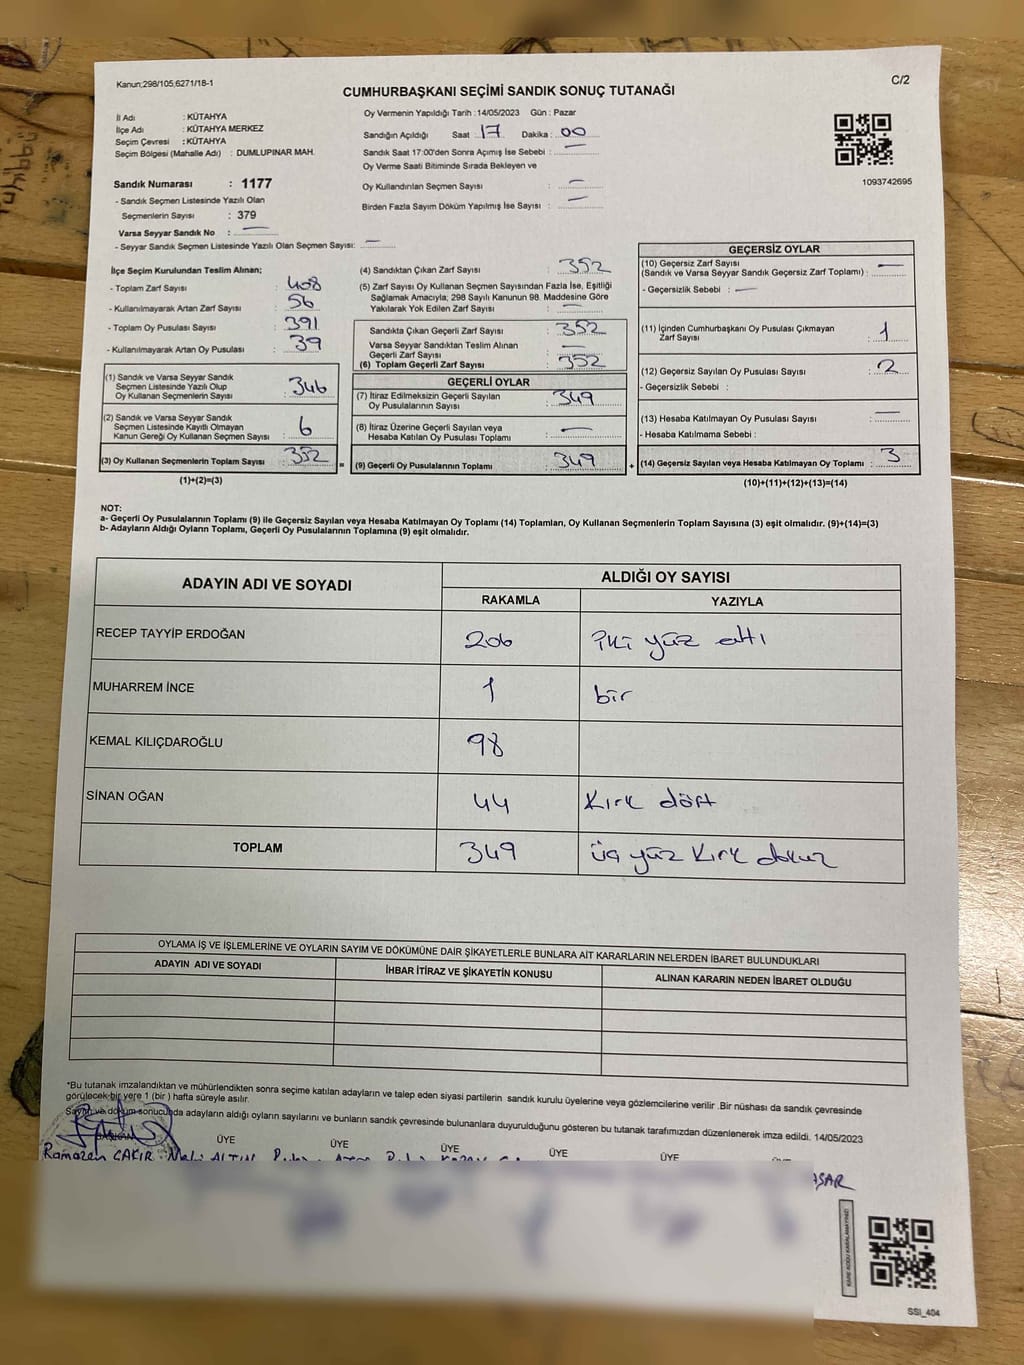 Kanun;298/105,6271/18-1
C/2
CUMHURBAŞKANI SEÇİMİ SANDIK SONUÇ TUTANAĞI
İl Adı : KÜTAHYA
İlçe Adı : KÜTAHYA MERKEZ
Seçim Çevresi : KÜTAHYA
Seçim Bölgesi (Mahalle Adı) : DUMLUPINAR MAH.
Sandık Numarası : 1177
- Sandık Seçmen Listesinde Yazılı Olan
Seçmenlerin Sayısı : 379
Varsa Seyyar Sandık No : —
- Seyyar Sandık Seçmen Listesinde Yazılı Olan Seçmen Sayısı: —
Oy Vermenin Yapıldığı Tarih : 14/05/2023 Gün : Pazar
Sandığın Açıldığı Saat : 17 Dakika : 00
Sandık Saat 17:00'den Sonra Açımış İse Sebebi : —
Oy Verme Saati Bitiminde Sırada Bekleyen ve
Oy Kullandırılan Seçmen Sayısı : —
Birden Fazla Sayım Döküm Yapılmış İse Sayısı : —
1093742695
İlçe Seçim Kurulundan Teslim Alınan;
- Toplam Zarf Sayısı : 408
- Kullanılmayarak Artan Zarf Sayısı : 56
- Toplam Oy Pusulası Sayısı : 391
- Kullanılmayarak Artan Oy Pusulası : 39
(1) Sandık ve Varsa Seyyar Sandık
Seçmen Listesinde Yazılı Olup
Oy Kullanan Seçmenlerin Sayısı : 346
(2) Sandık ve Varsa Seyyar Sandık
Seçmen Listesinde Kayıtlı Olmayan
Kanun Gereği Oy Kullanan Seçmen Sayısı : 6
(3) Oy Kullanan Seçmenlerin Toplam Sayısı : 352
(1)+(2)=(3)
(4) Sandıktan Çıkan Zarf Sayısı : 352
(5) Zarf Sayısı Oy Kullanan Seçmen Sayısından Fazla İse, Eşitliği
Sağlamak Amacıyla; 298 Sayılı Kanunun 98. Maddesine Göre
Yakılarak Yok Edilen Zarf Sayısı : —
Sandıkta Çıkan Geçerli Zarf Sayısı : 352
Varsa Seyyar Sandıktan Teslim Alınan
Geçerli Zarf Sayısı : —
(6) Toplam Geçerli Zarf Sayısı : 352
GEÇERLİ OYLAR
(7) İtiraz Edilmeksizin Geçerli Sayılan
Oy Pusulalarının Sayısı : 349
(8) İtiraz Üzerine Geçerli Sayılan veya
Hesaba Katılan Oy Pusulası Toplamı : —
= (9) Geçerli Oy Pusulalarının Toplamı : 349
GEÇERSİZ OYLAR
(10) Geçersiz Zarf Sayısı
(Sandık ve Varsa Seyyar Sandık Geçersiz Zarf Toplamı) : —
- Geçersizlik Sebebi : —
(11) İçinden Cumhurbaşkanı Oy Pusulası Çıkmayan
Zarf Sayısı : 1
(12) Geçersiz Sayılan Oy Pusulası Sayısı : 2
- Geçersizlik Sebebi :
(13) Hesaba Katılmayan Oy Pusulası Sayısı : —
- Hesaba Katılmama Sebebi :
+ (14) Geçersiz Sayılan veya Hesaba Katılmayan Oy Toplamı : 3
(10)+(11)+(12)+(13)=(14)
NOT:
a- Geçerli Oy Pusulalarının Toplamı (9) ile Geçersiz Sayılan veya Hesaba Katılmayan Oy Toplamı (14) Toplamları, Oy Kullanan Seçmenlerin Toplam Sayısına (3) eşit olmalıdır. (9)+(14)=(3)
b- Adayların Aldığı Oyların Toplamı, Geçerli Oy Pusulalarının Toplamına (9) eşit olmalıdır.
ADAYIN ADI VE SOYADI ALDIĞI OY SAYISI
RAKAMLA YAZIYLA
RECEP TAYYİP ERDOĞAN 206 iki yüz altı
MUHARREM İNCE 1 bir
KEMAL KILIÇDAROĞLU 98
SİNAN OĞAN 44 Kırk dört
TOPLAM 349 üç yüz kırk dokuz
OYLAMA İŞ VE İŞLEMLERİNE VE OYLARIN SAYIM VE DÖKÜMÜNE DAİR ŞİKAYETLERLE BUNLARA AİT KARARLARIN NELERDEN İBARET BULUNDUKLARI
ADAYIN ADI VE SOYADI İHBAR İTİRAZ VE ŞİKAYETİN KONUSU ALINAN KARARIN NEDEN İBARET OLDUĞU
*Bu tutanak imzalandıktan ve mühürlendikten sonra seçime katılan adayların ve talep eden siyasi partilerin sandık kurulu üyelerine veya gözlemcilerine verilir .Bir nüshası da sandık çevresinde
görülecek bir yere 1 (bir ) hafta süreyle asılır.
Sayım ve döküm sonucunda adayların aldığı oyların sayılarını ve bunların sandık çevresinde bulunanlara duyurulduğunu gösteren bu tutanak tarafımızdan düzenlenerek imza edildi. 14/05/2023
BAŞKAN ÜYE ÜYE ÜYE ÜYE ÜYE
Ramazan ÇAKIR
SSI_404